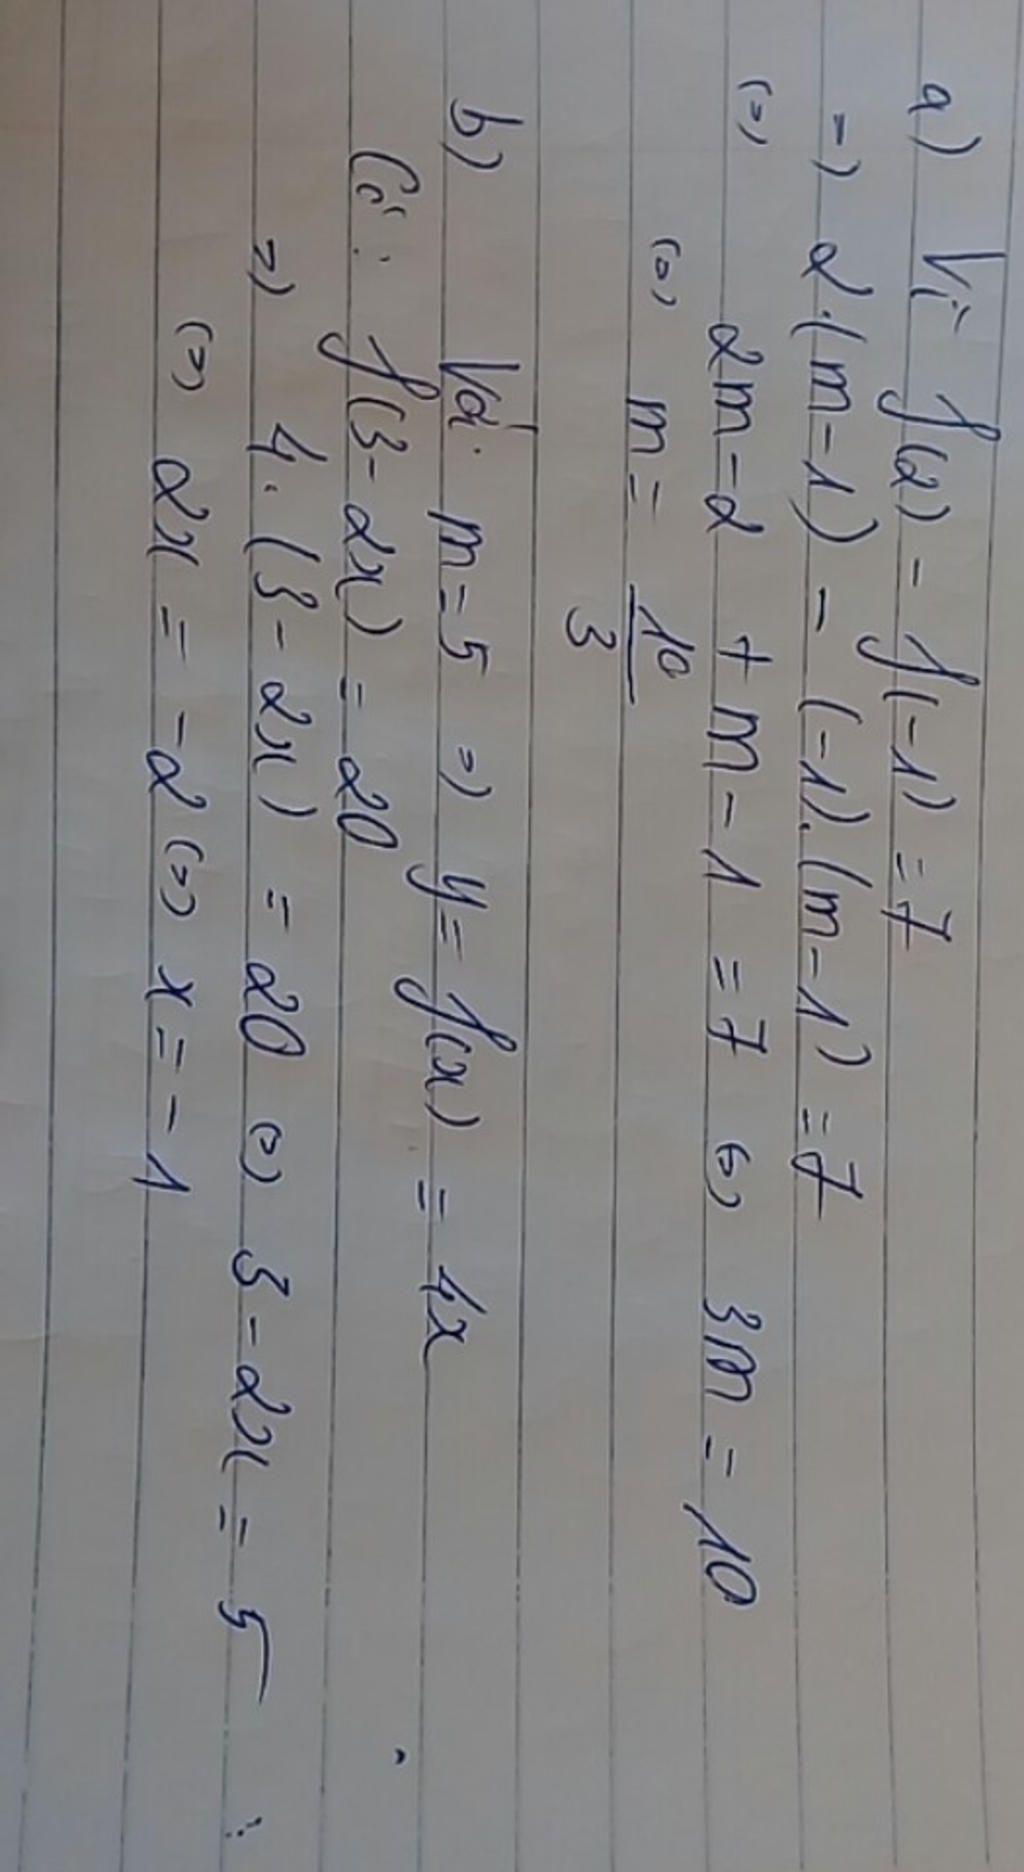 a) Vì f(2) - f(-1) = 7
=) 2.(m-1) - (-1).(m-1) = 7
(=) 2m-2 + m-1 = 7 (=) 3m = 10
(=) m = 10/3
b) Với m=5 =) y = f(x) = 4x
Có: f(3-2x) = 20
=) 4.(3-2x) = 20 (=) 3-2x = 5
(=) 2x = -2 (=) x = -1